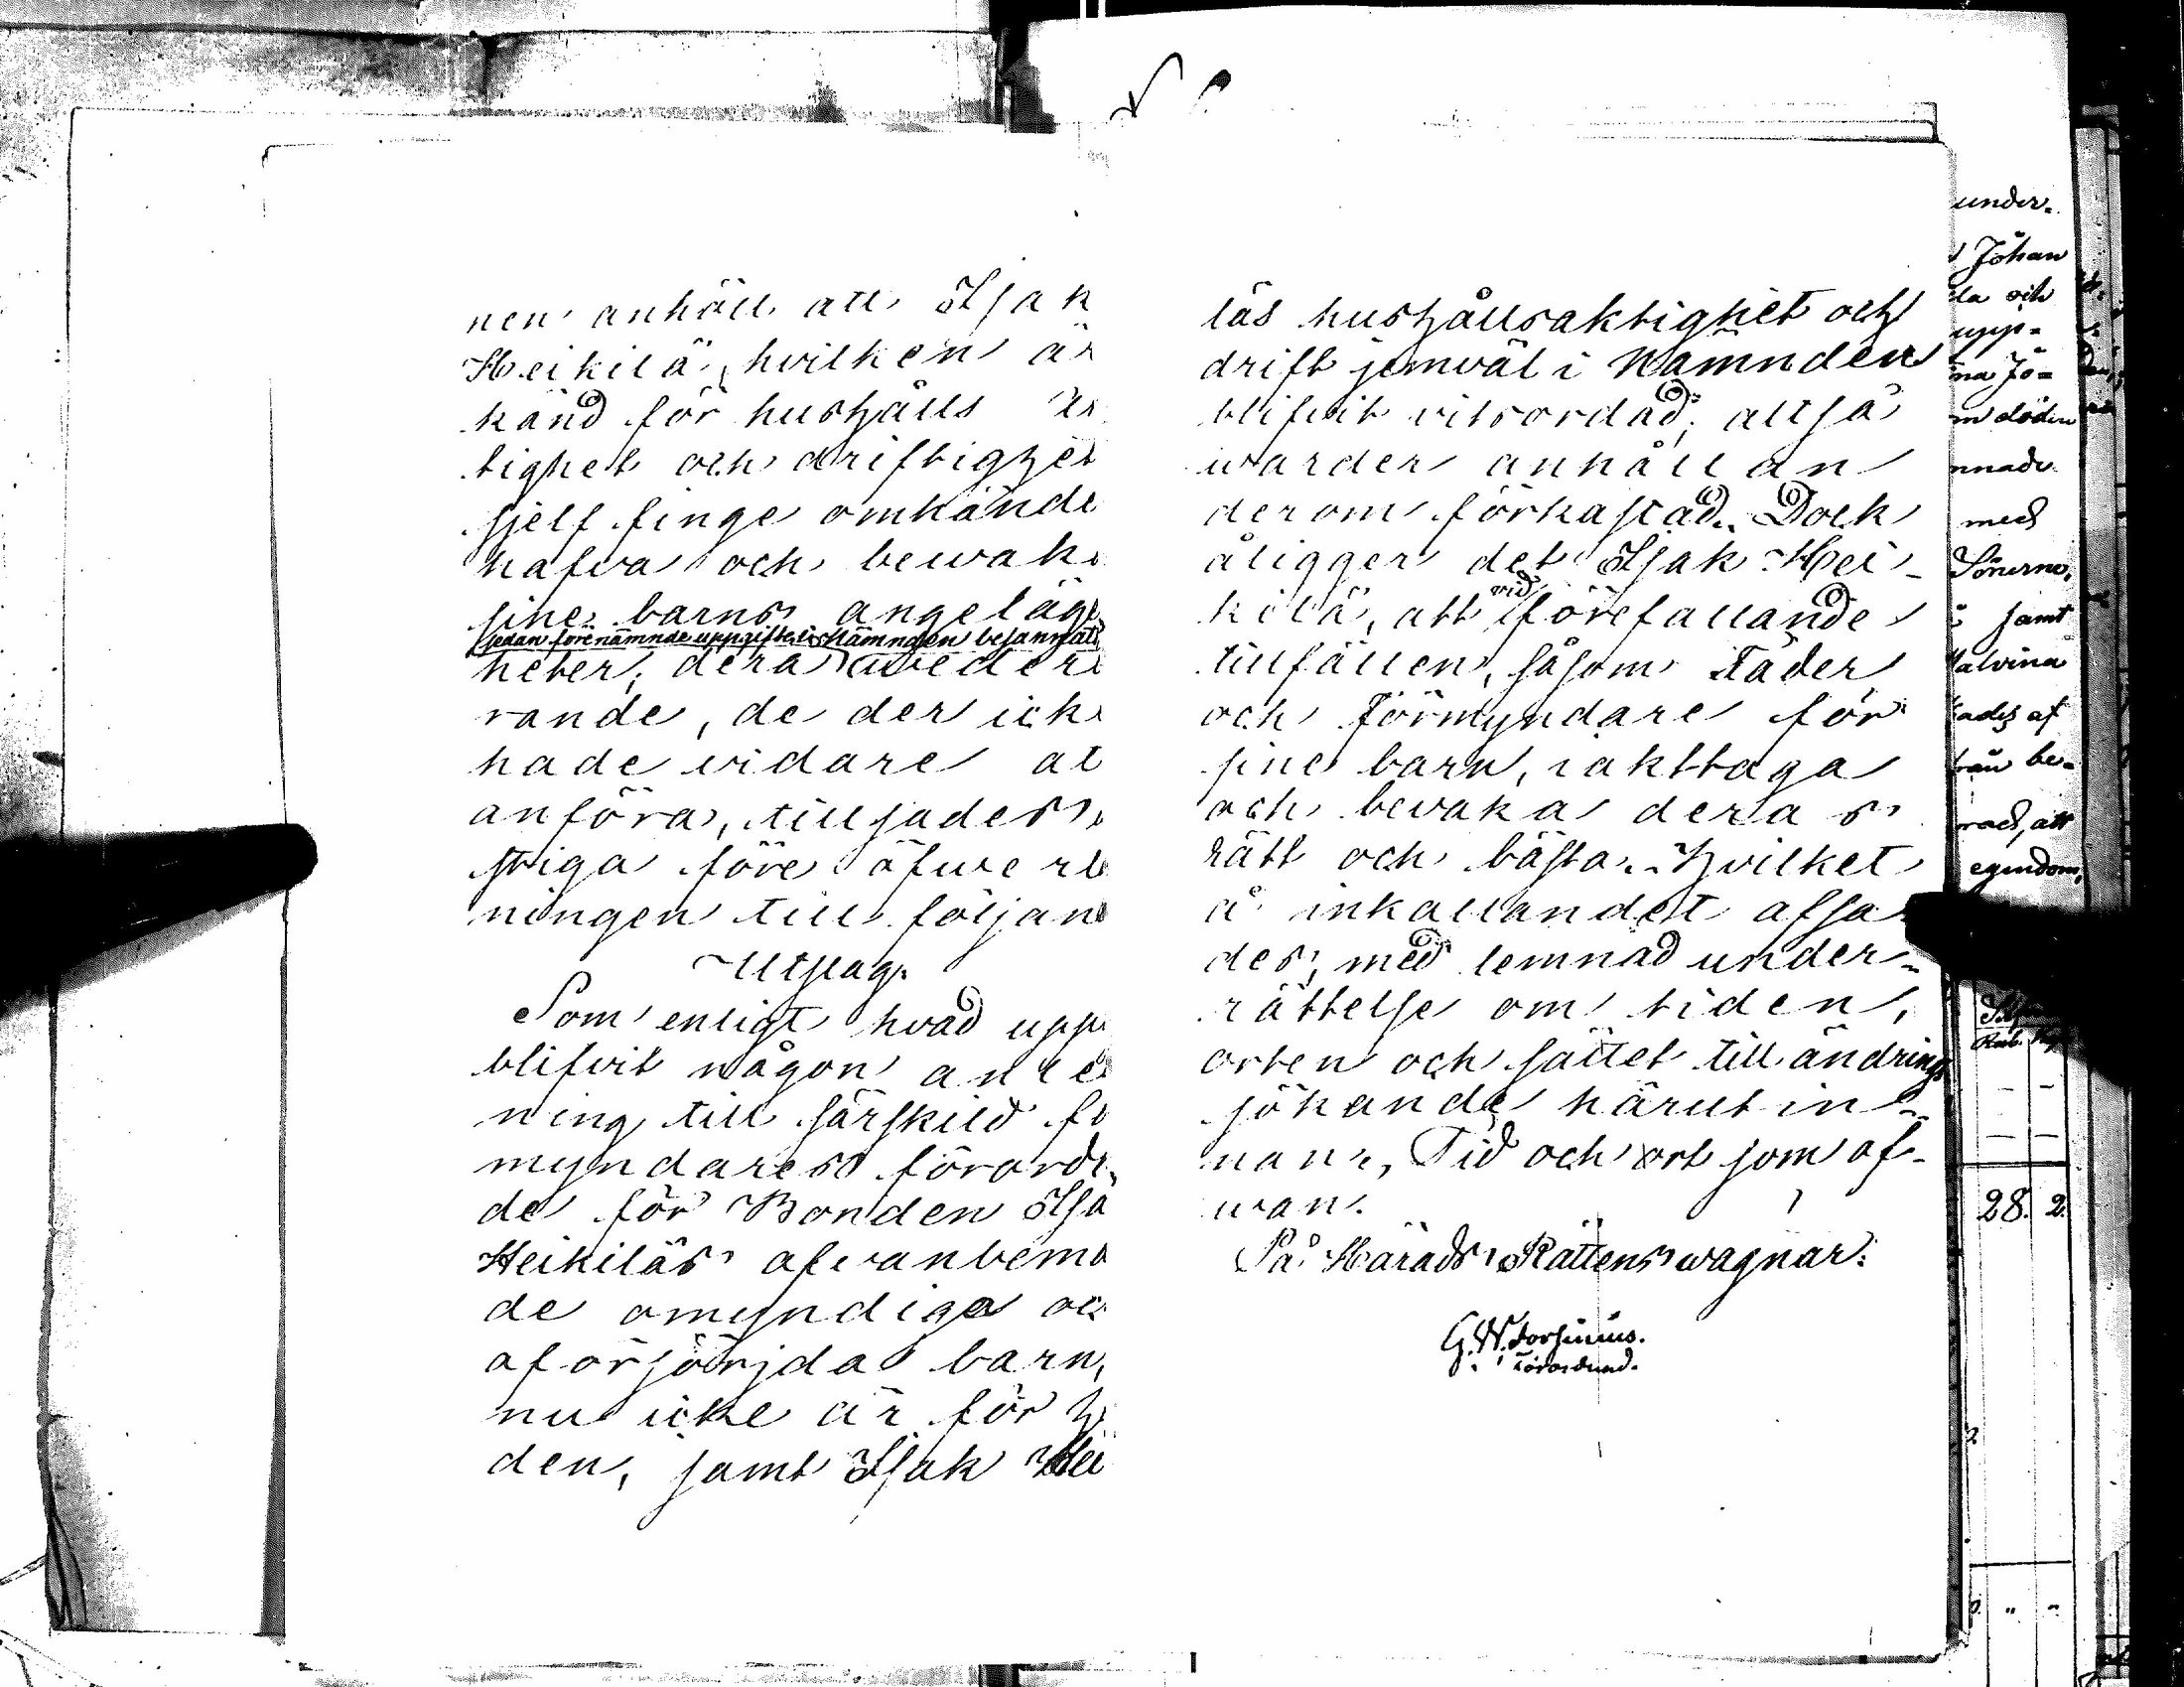 nen anhåll att Isak
Heikilä, hvilken är
känd för hushålls ak
tighet och driftighet
sjelf finge omhände
hafva och bewak
sine barns angeläge
sedan förenämnde uppgifter i Nämnden besannats
heter, dera weder
rande, de der ick
hade vidare at
anföra, tillsades
stiga före öfwe rl
ningen till följan
Utslag.
Som enligt hvad upp
blifvit någon anle
ning till särskild fö
myndares förord
de för Bonden Isa
Heikiläs ofvanbemä
de omyndiga oc
oförsörjda barn,
nu icke är för h
den, samt Isak Hei
läs hushållsaktighet och
drift jemväl i Nämnden
blifvit vitsordad; alltså
warder anhållan
derom förkastad. Dock
åligger det Isak Hei-
kilä, att vid förefallande
tillfällen, såsom Fader
och Förmyndare för
sine barn, iakttaga
och bevaka deras
rätt och bästa. Hvilket
å inkallandet afsa
des, med lemnad under-
rättelse om tiden,
orten och sättet till ändrings
sökande härut in-
nan, Tid och ort som of-
wan.
På Härads Rättens wagnar:
G. W. Forsinius.
Förordnad.
under-
Johan
la och
upp-
ina Jo-
m döden
nnade
med
Sönerne,
samt
Malvina
kades af
från be-
rad, att
egendom,
Rub.
28. 2.